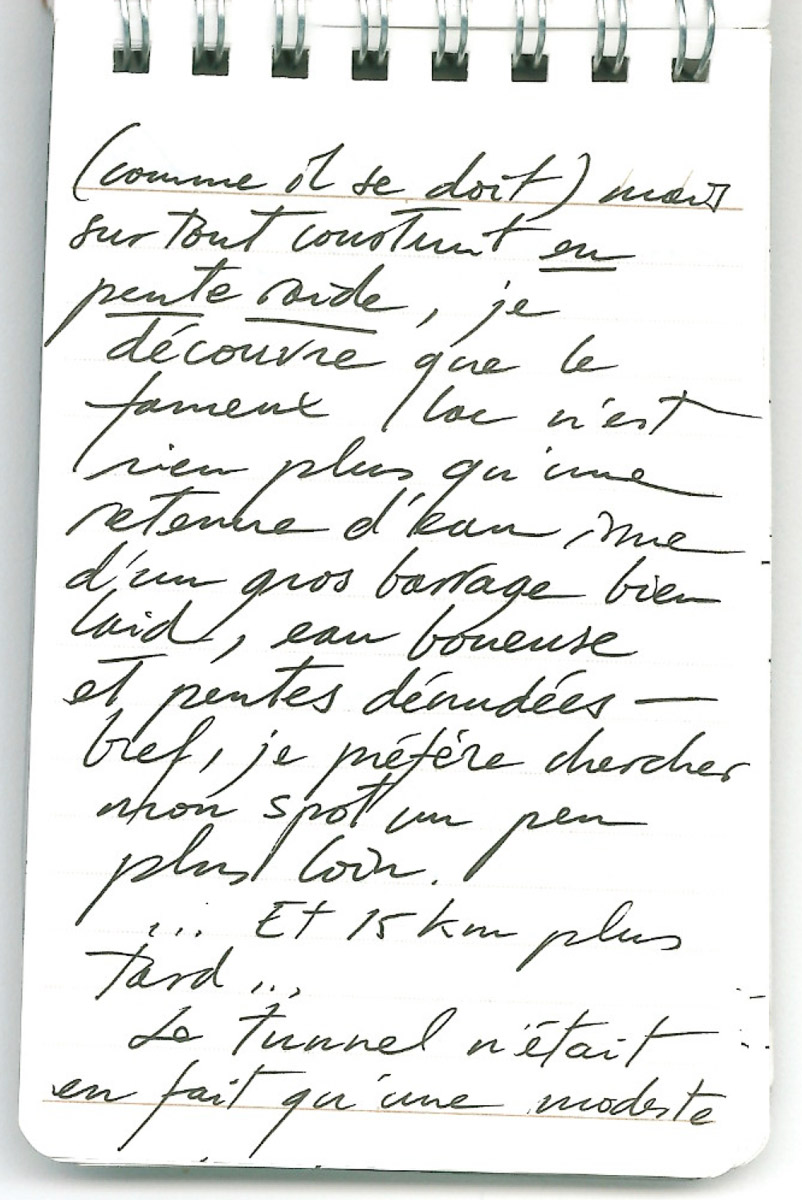 (comme il se doit) mais
surtout construit en
pente raide, je
découvre que le
fameux lac n'est
rien plus qu'une
retenue d'eau, issue
d'un gros barrage bien
laid, eau boueuse
et pentes dénudées —
bref, je préfère chercher
mon spot un peu
plus loin.
... Et 15 km plus
tard...
Le tunnel n'était
en fait qu'une modeste